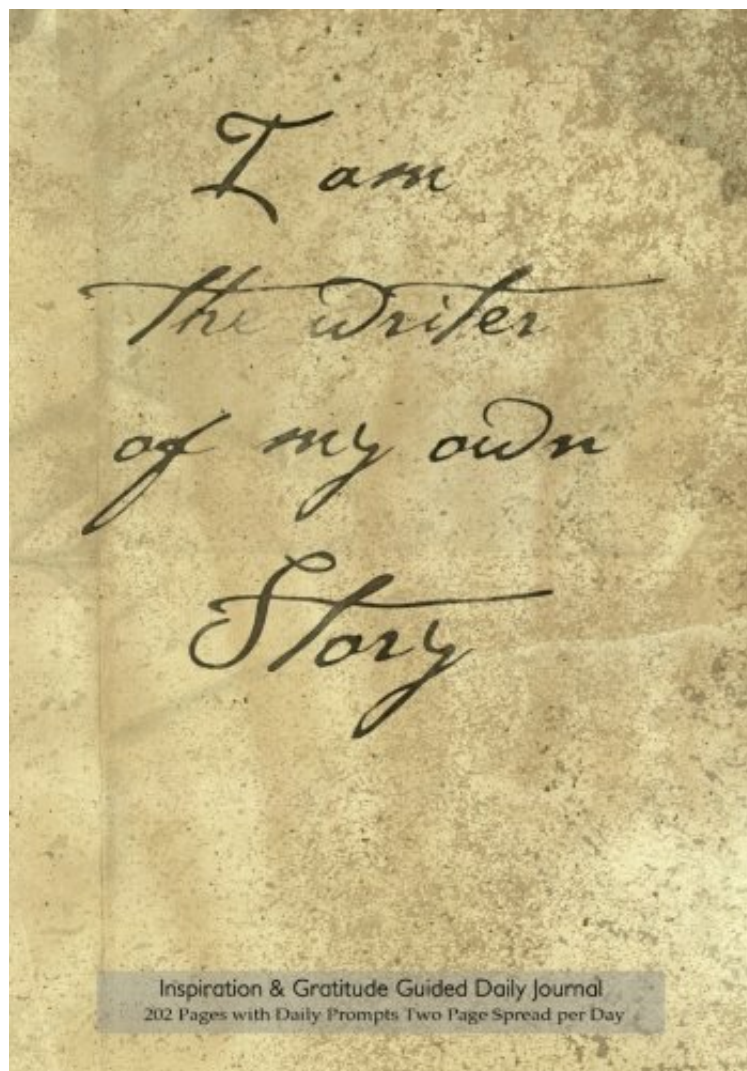 I am
the writer
of my own
Story
Inspiration & Gratitude Guided Daily Journal
202 Pages with Daily Prompts Two Page Spread per Day